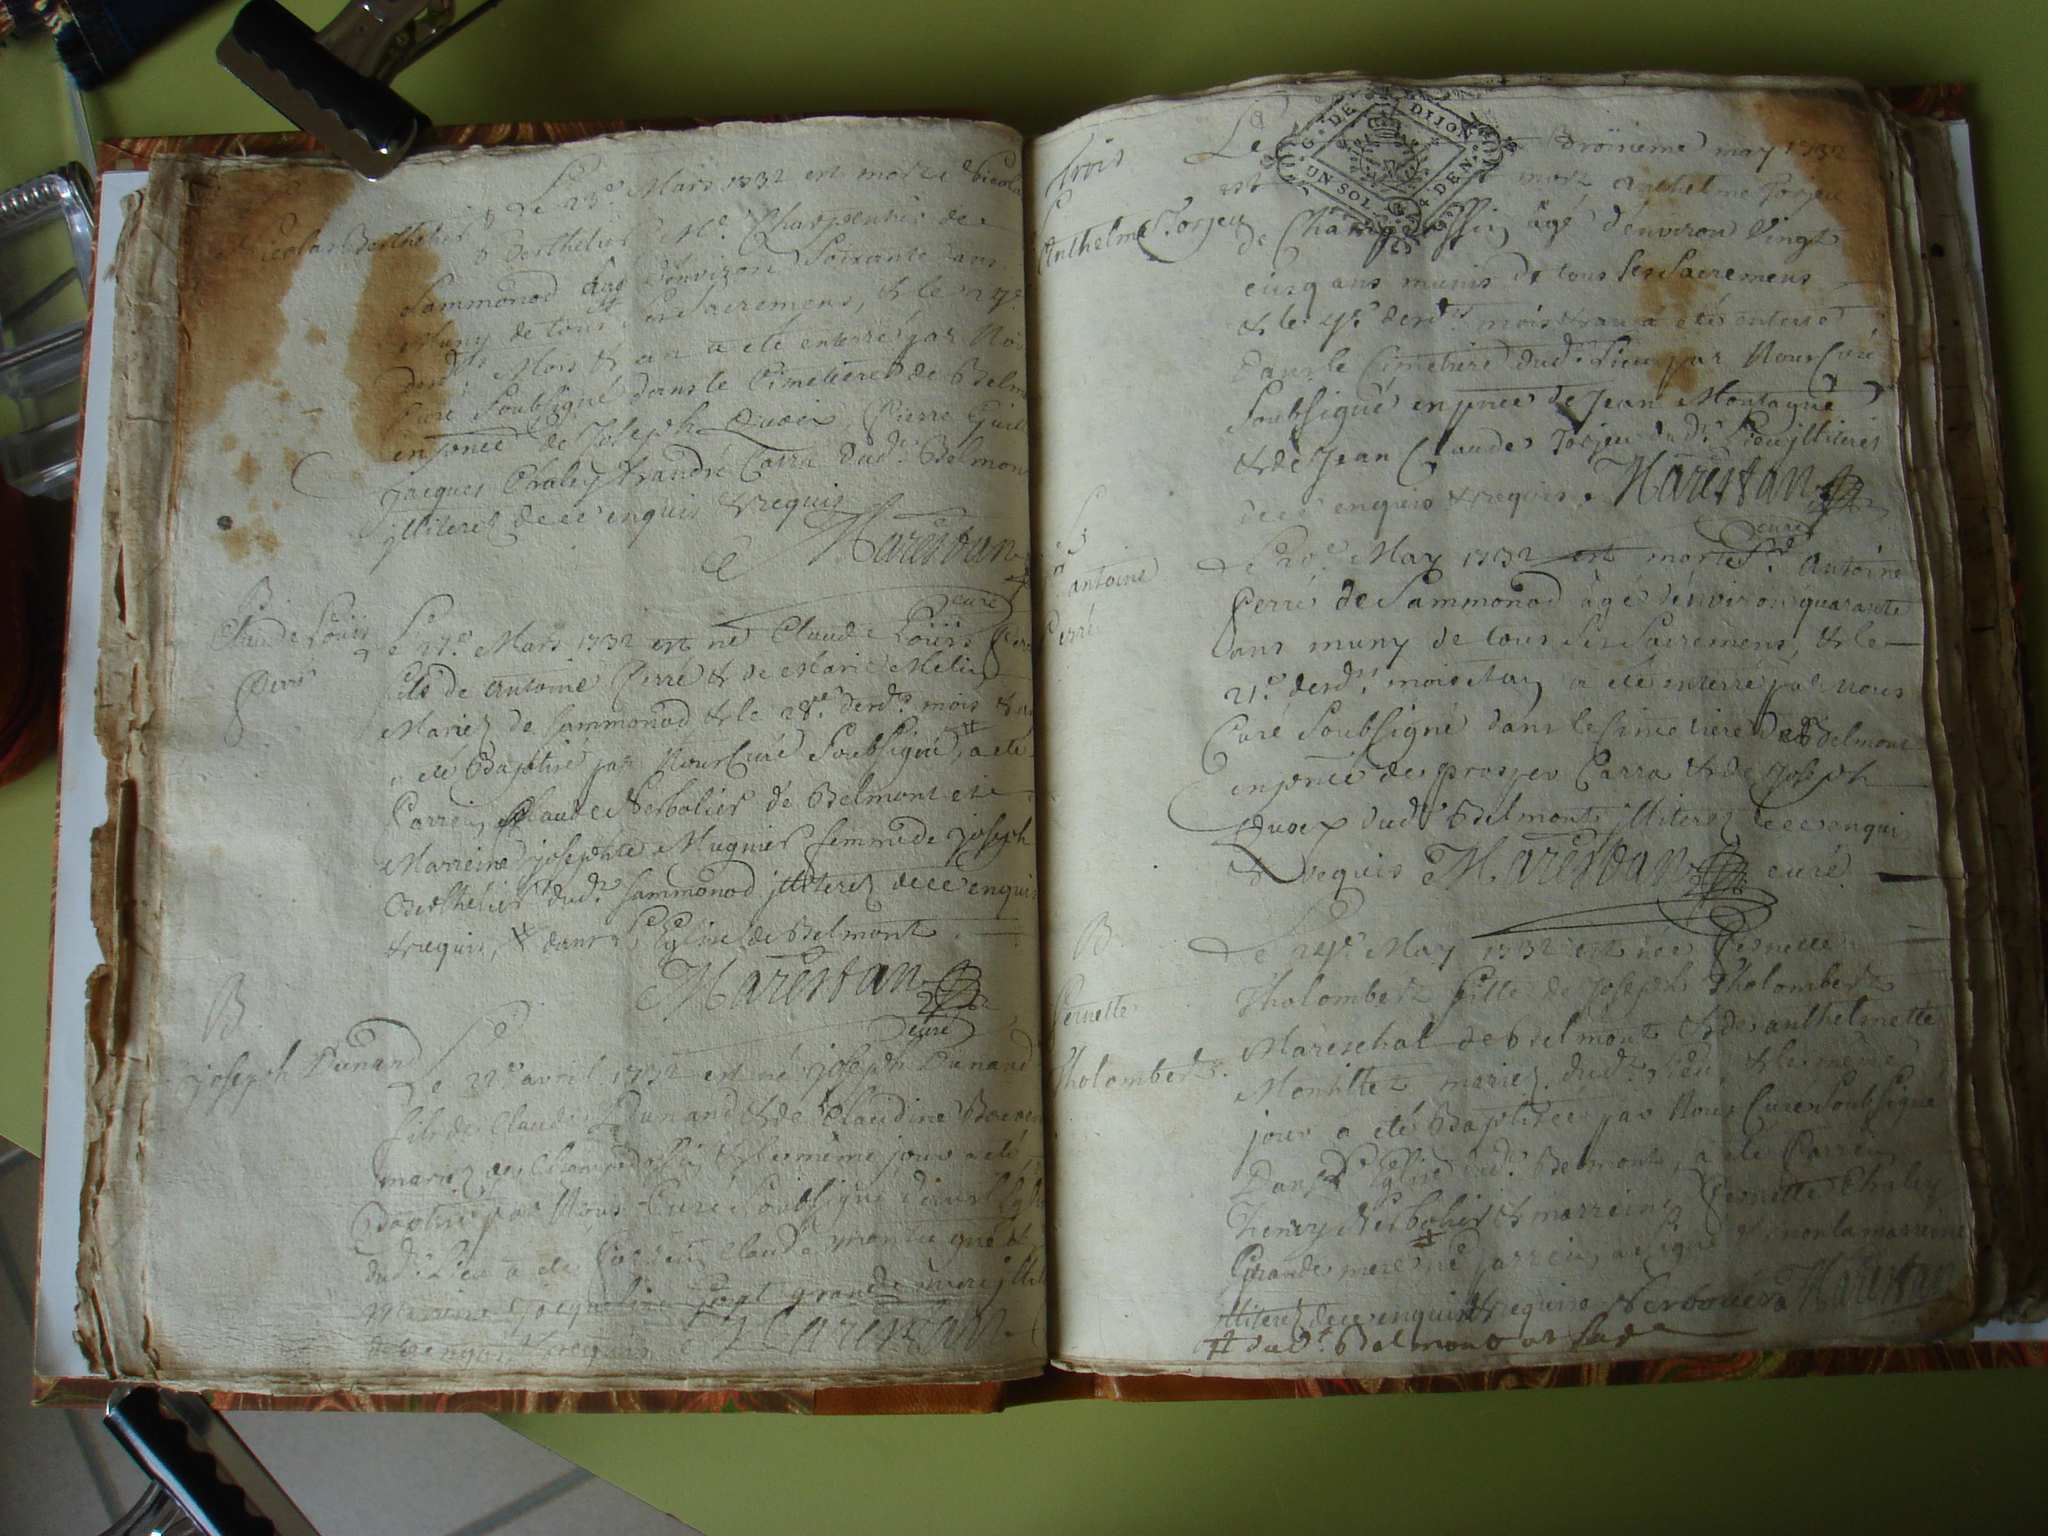 Le 23e Mars 1732 est mort Nicolas
Nicolas Berthelier
Berthelier Me Charpentier de
Sammonod âgé d'environ Soixante ans
Muny de tous ses Sacremens, & le 24e
desdts Mois & an a été enterré par Nous
Curé Soubsigné dans le Cimetiere de Belmont
en pnce de Joseph Quoex, Pierre
Jacques Chaley & andré Carra dudt Belmont
jlliterez de ce enquis & requis
Marestan
curé
B
Claude Loüis
Perré
Le 27e Mars 1732 est né Claude Loüis Perré
fils de Antoine Perré & de Marie
Mariez de Sammonod & le 28e desdts mois & an
a été Baptisé par Nous Curé Soubsigné, a été
Parrein Claude Verbolier de Belmont et
Marreine josephte Mugnier femme de joseph
Berthelier dudt Sammonod jlliterez de ce enquis
& requis, dans l'Eglise de Belmont
Marestan
curé
B
joseph Dunand
Le 22e avril 1732 est né joseph Dunand
fils de Claude Dunand & de Claudine
mariez de Champdossin & le même jour a été
Baptisé par Nous Curé Soubsigné dans l'Eglise
dudt Lieu a été Parrein Claude Montagne &
Marreine Jacqueline grande mere
de ce enquis & requis Marestan
trois
G. DE DIJON
UN SOL
DEN
Le troisieme may 1732
est mort Anthelme Torjeu
Anthelme Torjeu
de Champdossin âgé d'environ Vingt
cinq ans munis de tous ses Sacremens
& le 4e desdts mois & an a été enterré
dans le Cimetiere dudt Lieu par Nous Curé
Soubsigné en pnce de Jean Montagne
& de Jean Claude Torjeu dudt Lieu jlliterés
de ce enquis & requis. Marestan
curé
S
antoine
Perré
Le 20e May 1732 est mort Sr Antoine
Perré de Sammonod âgé d'environ quarante
ans muny de tous ses Sacremens, & le
21e desdts mois & an a été enterré par nous
Curé Soubsigné dans le Cimetiere de Belmont
en pnce de prosper Carra & de Joseph
Quoex dudt Belmont jlliterez de ce enquis
& requis Marestan curé
B
Pernette
Tholombert
Le 24e May 1732 est née Pernette
Tholombert fille de Joseph Tholombert
Mareschal de Belmont & de anthelmette
Montillet mariez dudt Lieu, & le même
jour a été Baptisée par Nous Curé Soubsigné
Dans l'Eglise dudt Belmont, a été Parrein
henry Verbolier & marreine Pernette Chaley
Grande mere le parrein a signé & non la marreine
jlliterez de ce enquis & requis Verbolier Marestan
dudt Belmont